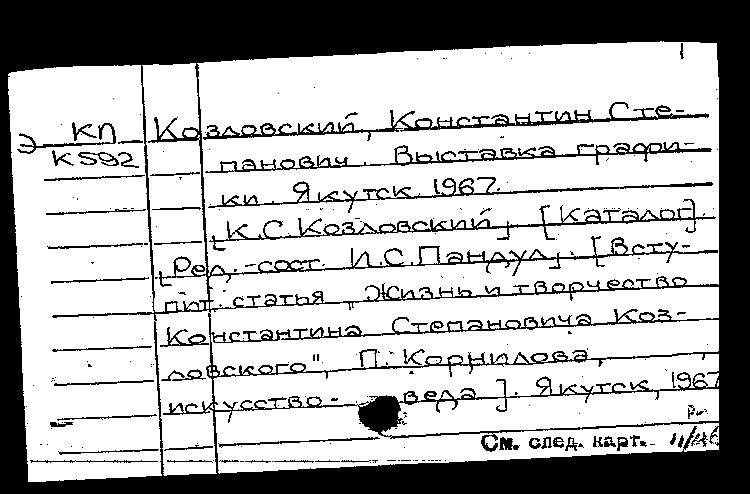 Э КП Козловский, Константин Сте-
К592 панович. Выставка графи-
ки. Якутск 1967.
[К.С.Козловский]. [Каталог].
[Ред.-сост. И.С.Пандул]. [Всту-
пит. статья „Жизнь и творчество
Константина Степановича Коз-
ловского", П. Корнилова,
искусство- веда]. Якутск, 1967
См. след. карт.